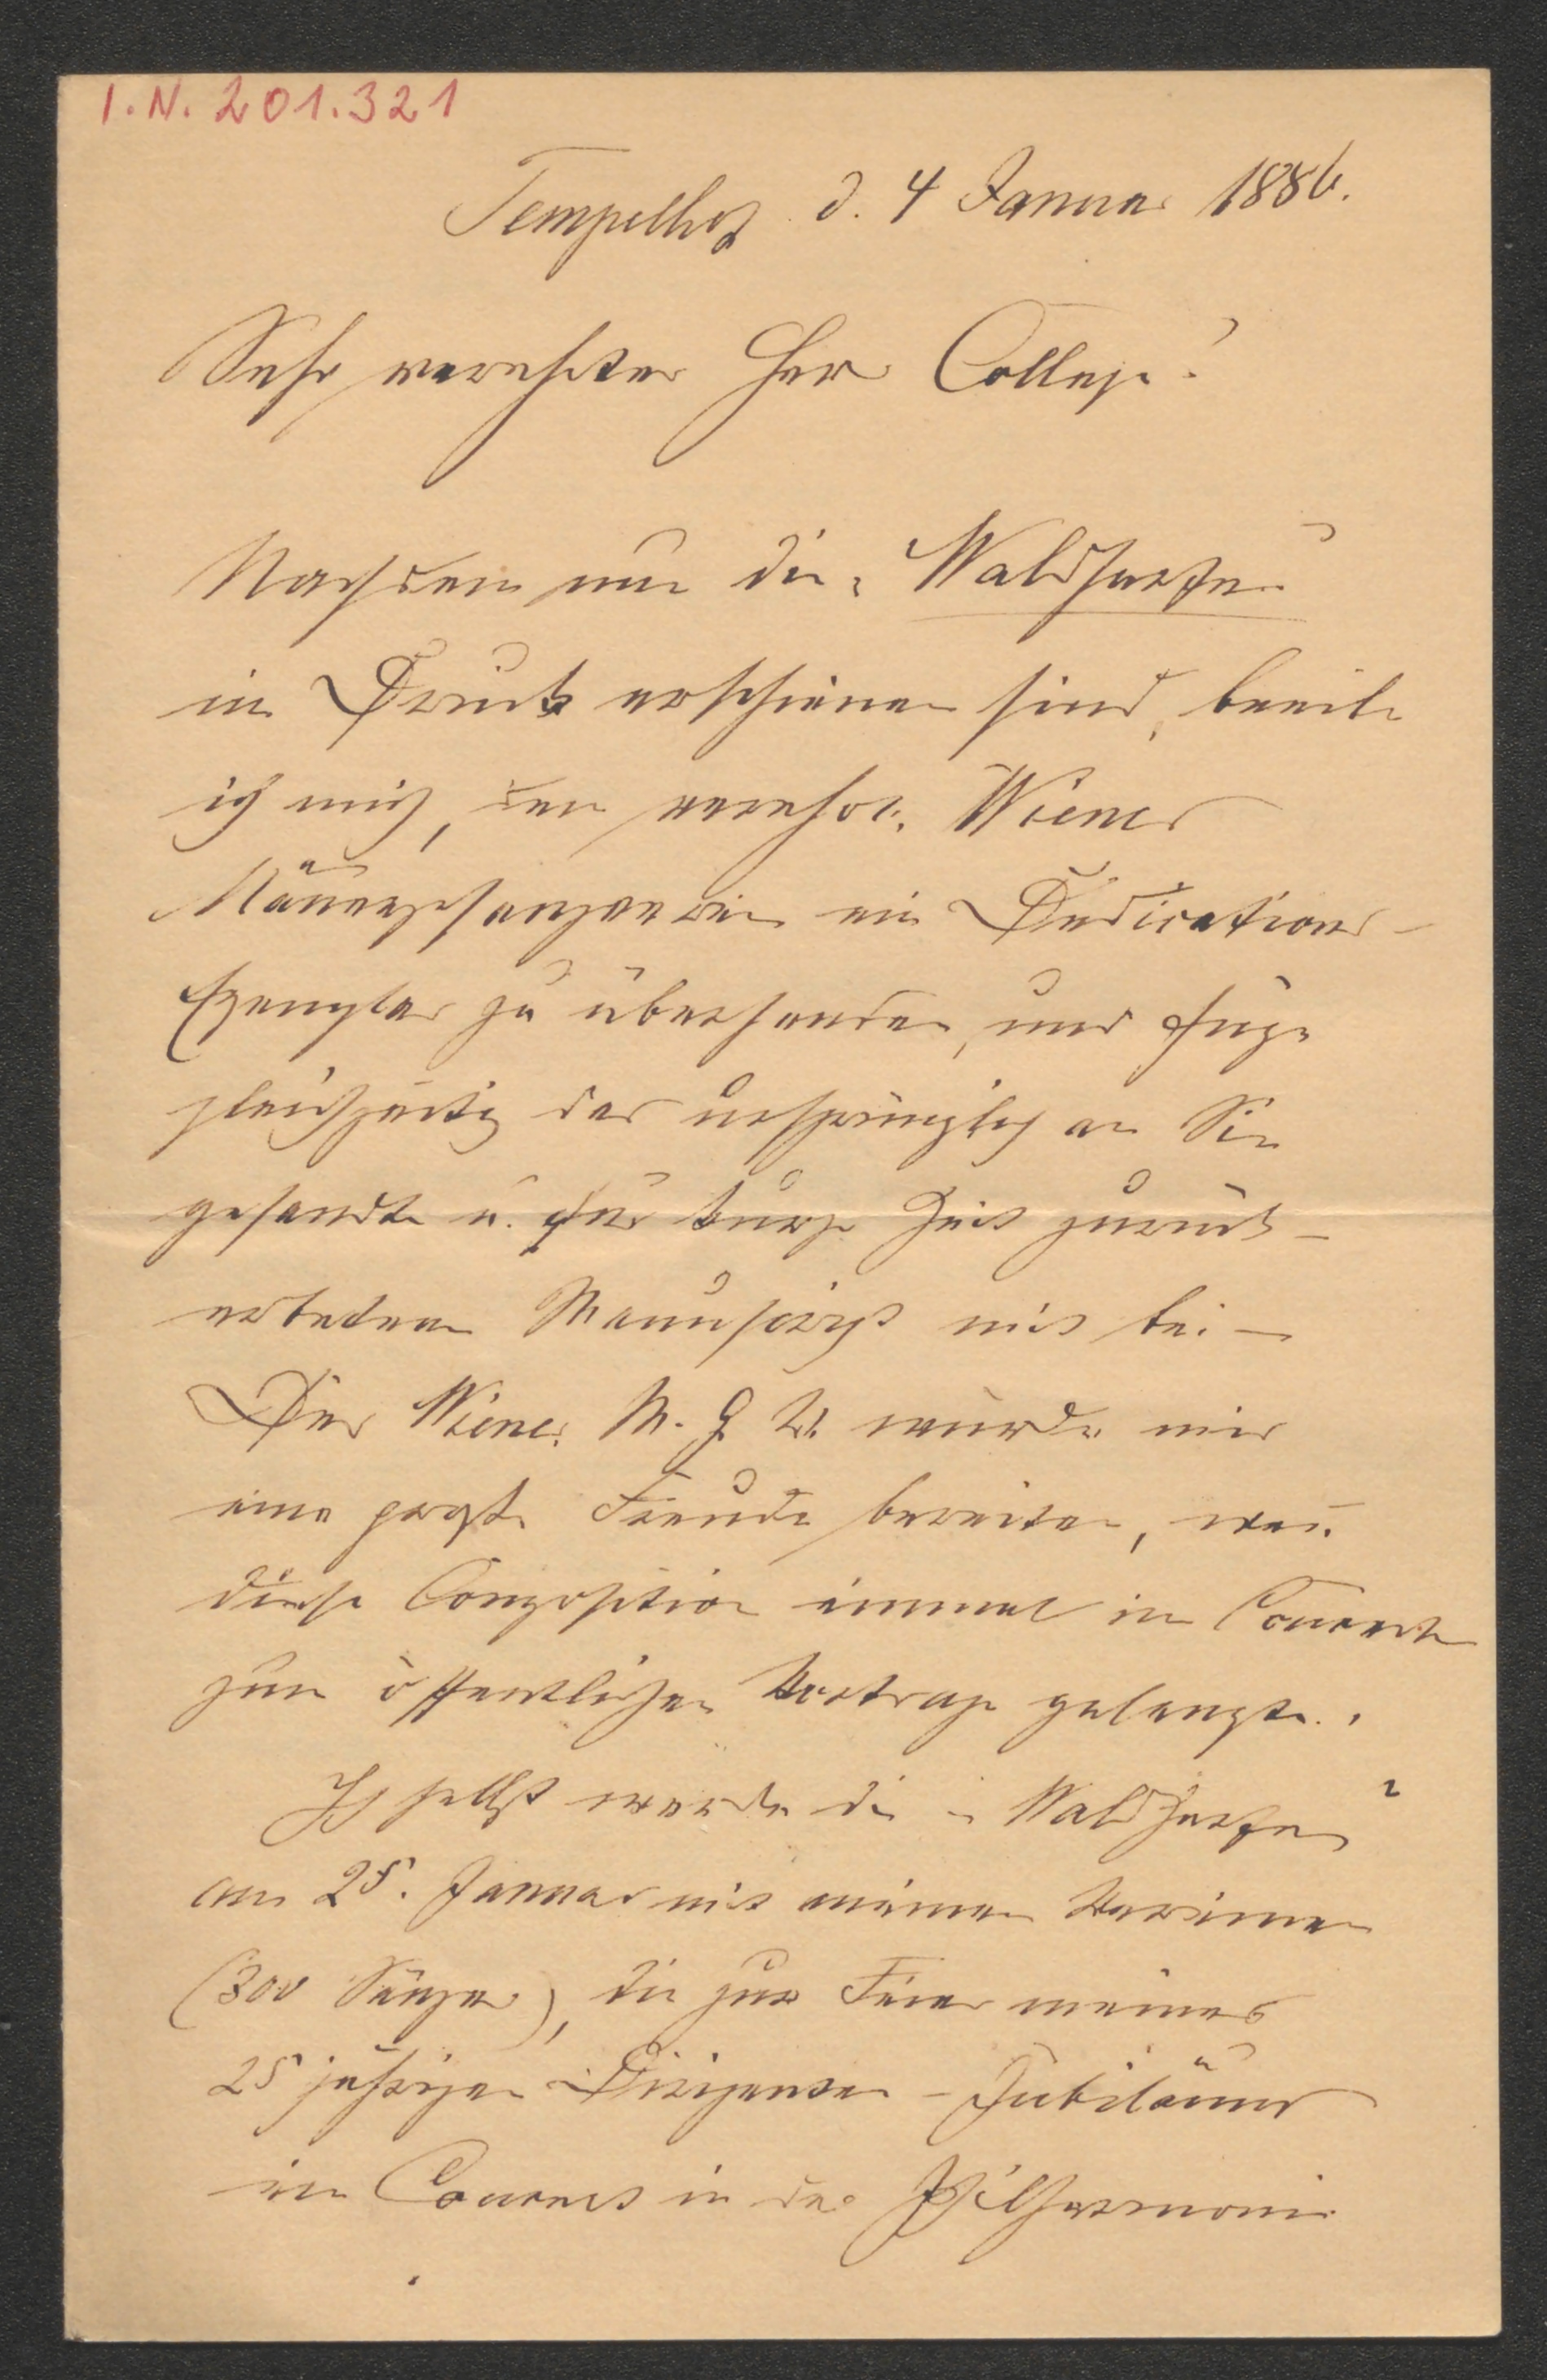 I. N. 201.321
Tempelhof d. 4 Januar 1886.
Sehr verehrter Herr College!
Nachdem nun die „Waldharfen“
im Druck erschienen sind, beeile
ich mich, dem verehrl. Wiener
Männergesangverein ein Dedications-
Exemplar zu übersenden, und füge
gleichzeitig das ursprünglich an Sie
gesandte u. für kurze Zeit zurück-
erbetene Manuscript mit bei –
Der Wiener M. G. V. würde mir
eine große Freude bereiten, wenn
diese Composition einmal im Concert
zum öffentlichen Vortrage gelangte.
Ich selbst werde die „Waldharfen“
am 25. Januar mit meinen Vereinen
(300 Sänger), die zur Feier meines
25 jährigen Dirigenten-Jubiläums
ein Concert in der Philharmonie